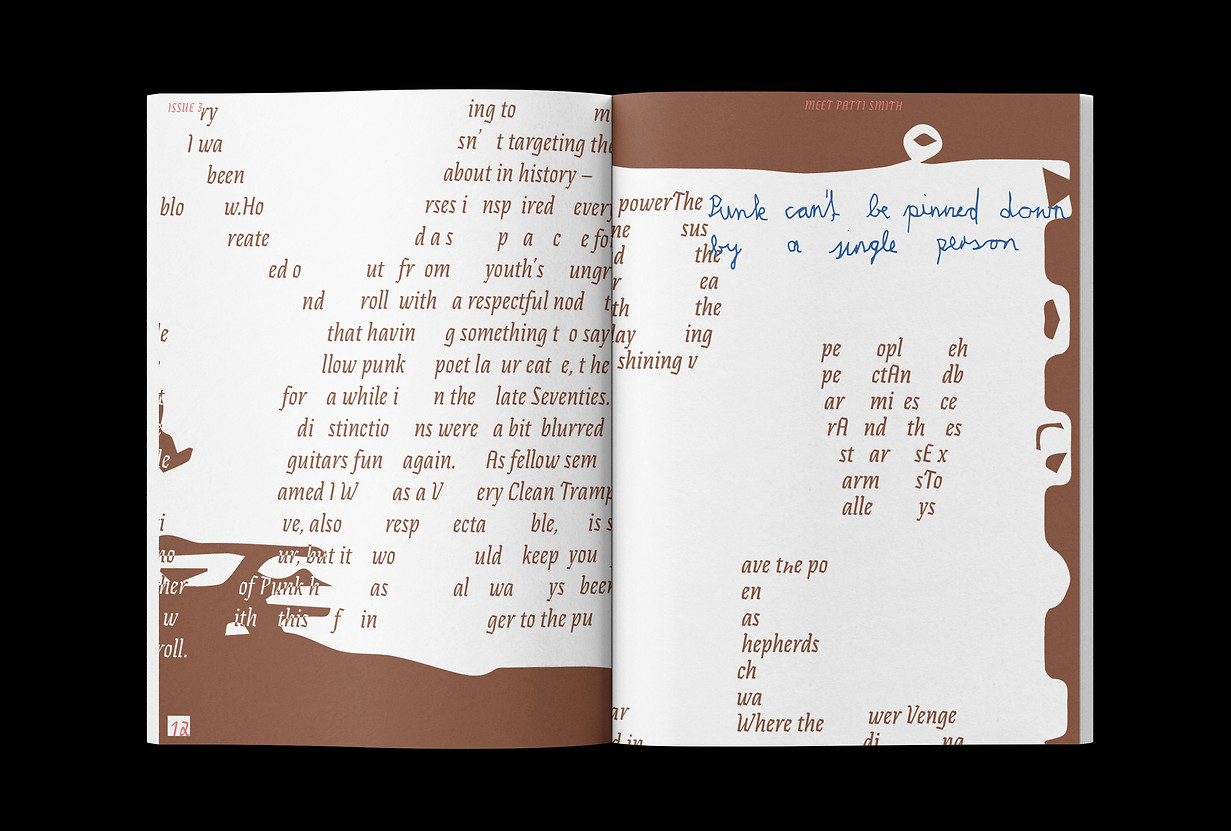 ISSUE 3
ry ing to m
I wa sn' t targeting the
been about in history –
blo w.Ho rses i nsp ired every
reate d a s p a c e fo
ed o ut fr om youth's ungr
nd roll with a respectful nod t
le that havin g something t o say
llow punk poet la ur eat e, t he
t for a while i n the late Seventies.
di stinctio ns were a bit blurred
le guitars fun again. As fellow sem
amed I W as a V ery Clean Tramp
i ve, also resp ecta ble, is s
no ur, but it wo uld keep you
her of Punk h as al wa ys been
w ith this f in ger to the pu
roll.
12
MEET PATTI SMITH
powerThe
ne sus
d the
r ea
th the
lay ing
shining v
Punk can't be pinned down
by a single person
pe opl eh
pe ctAn db
ar mi es ce
rA nd th es
st ar sE x
arm sTo
alle ys
ave the po
en
as
hepherds
ch
wa
ar Where the wer Venge
d in di na